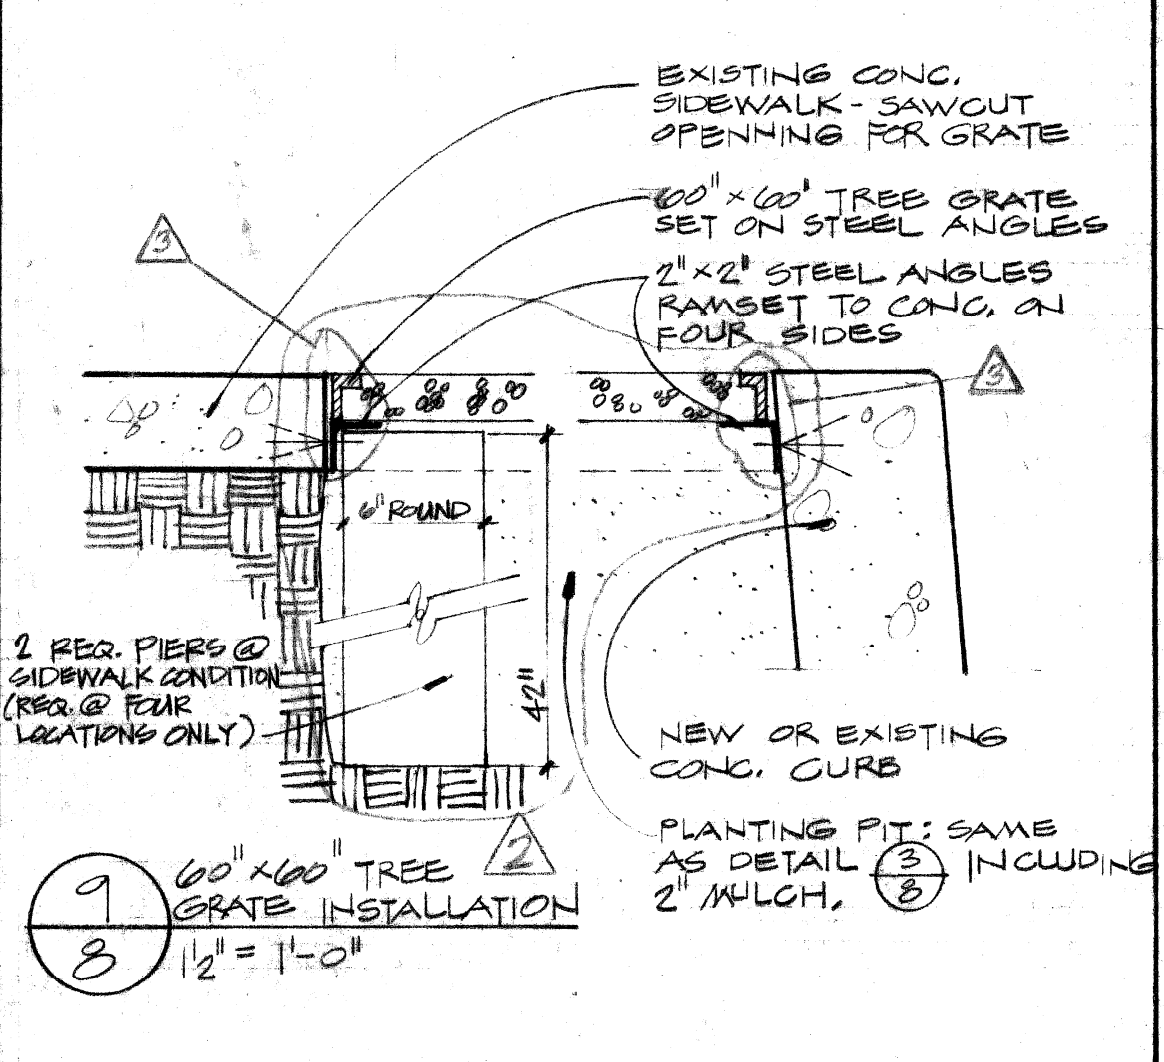 EXISTING CONC.
SIDEWALK - SAWCUT
OPENNING FOR GRATE
60" x 60' TREE GRATE
SET ON STEEL ANGLES
2" x 2" STEEL ANGLES
RAMSET TO CONC. ON
FOUR SIDES
3
3
6" ROUND
42"
2 REQ. PIERS @
SIDEWALK CONDITION
(REQ. @ FOUR
LOCATIONS ONLY)
NEW OR EXISTING
CONC. CURB
PLANTING PIT: SAME
AS DETAIL 3/8 INCLUDING
2" MULCH.
2
9
8
60" x 60" TREE
GRATE INSTALLATION
1½" = 1'-0"